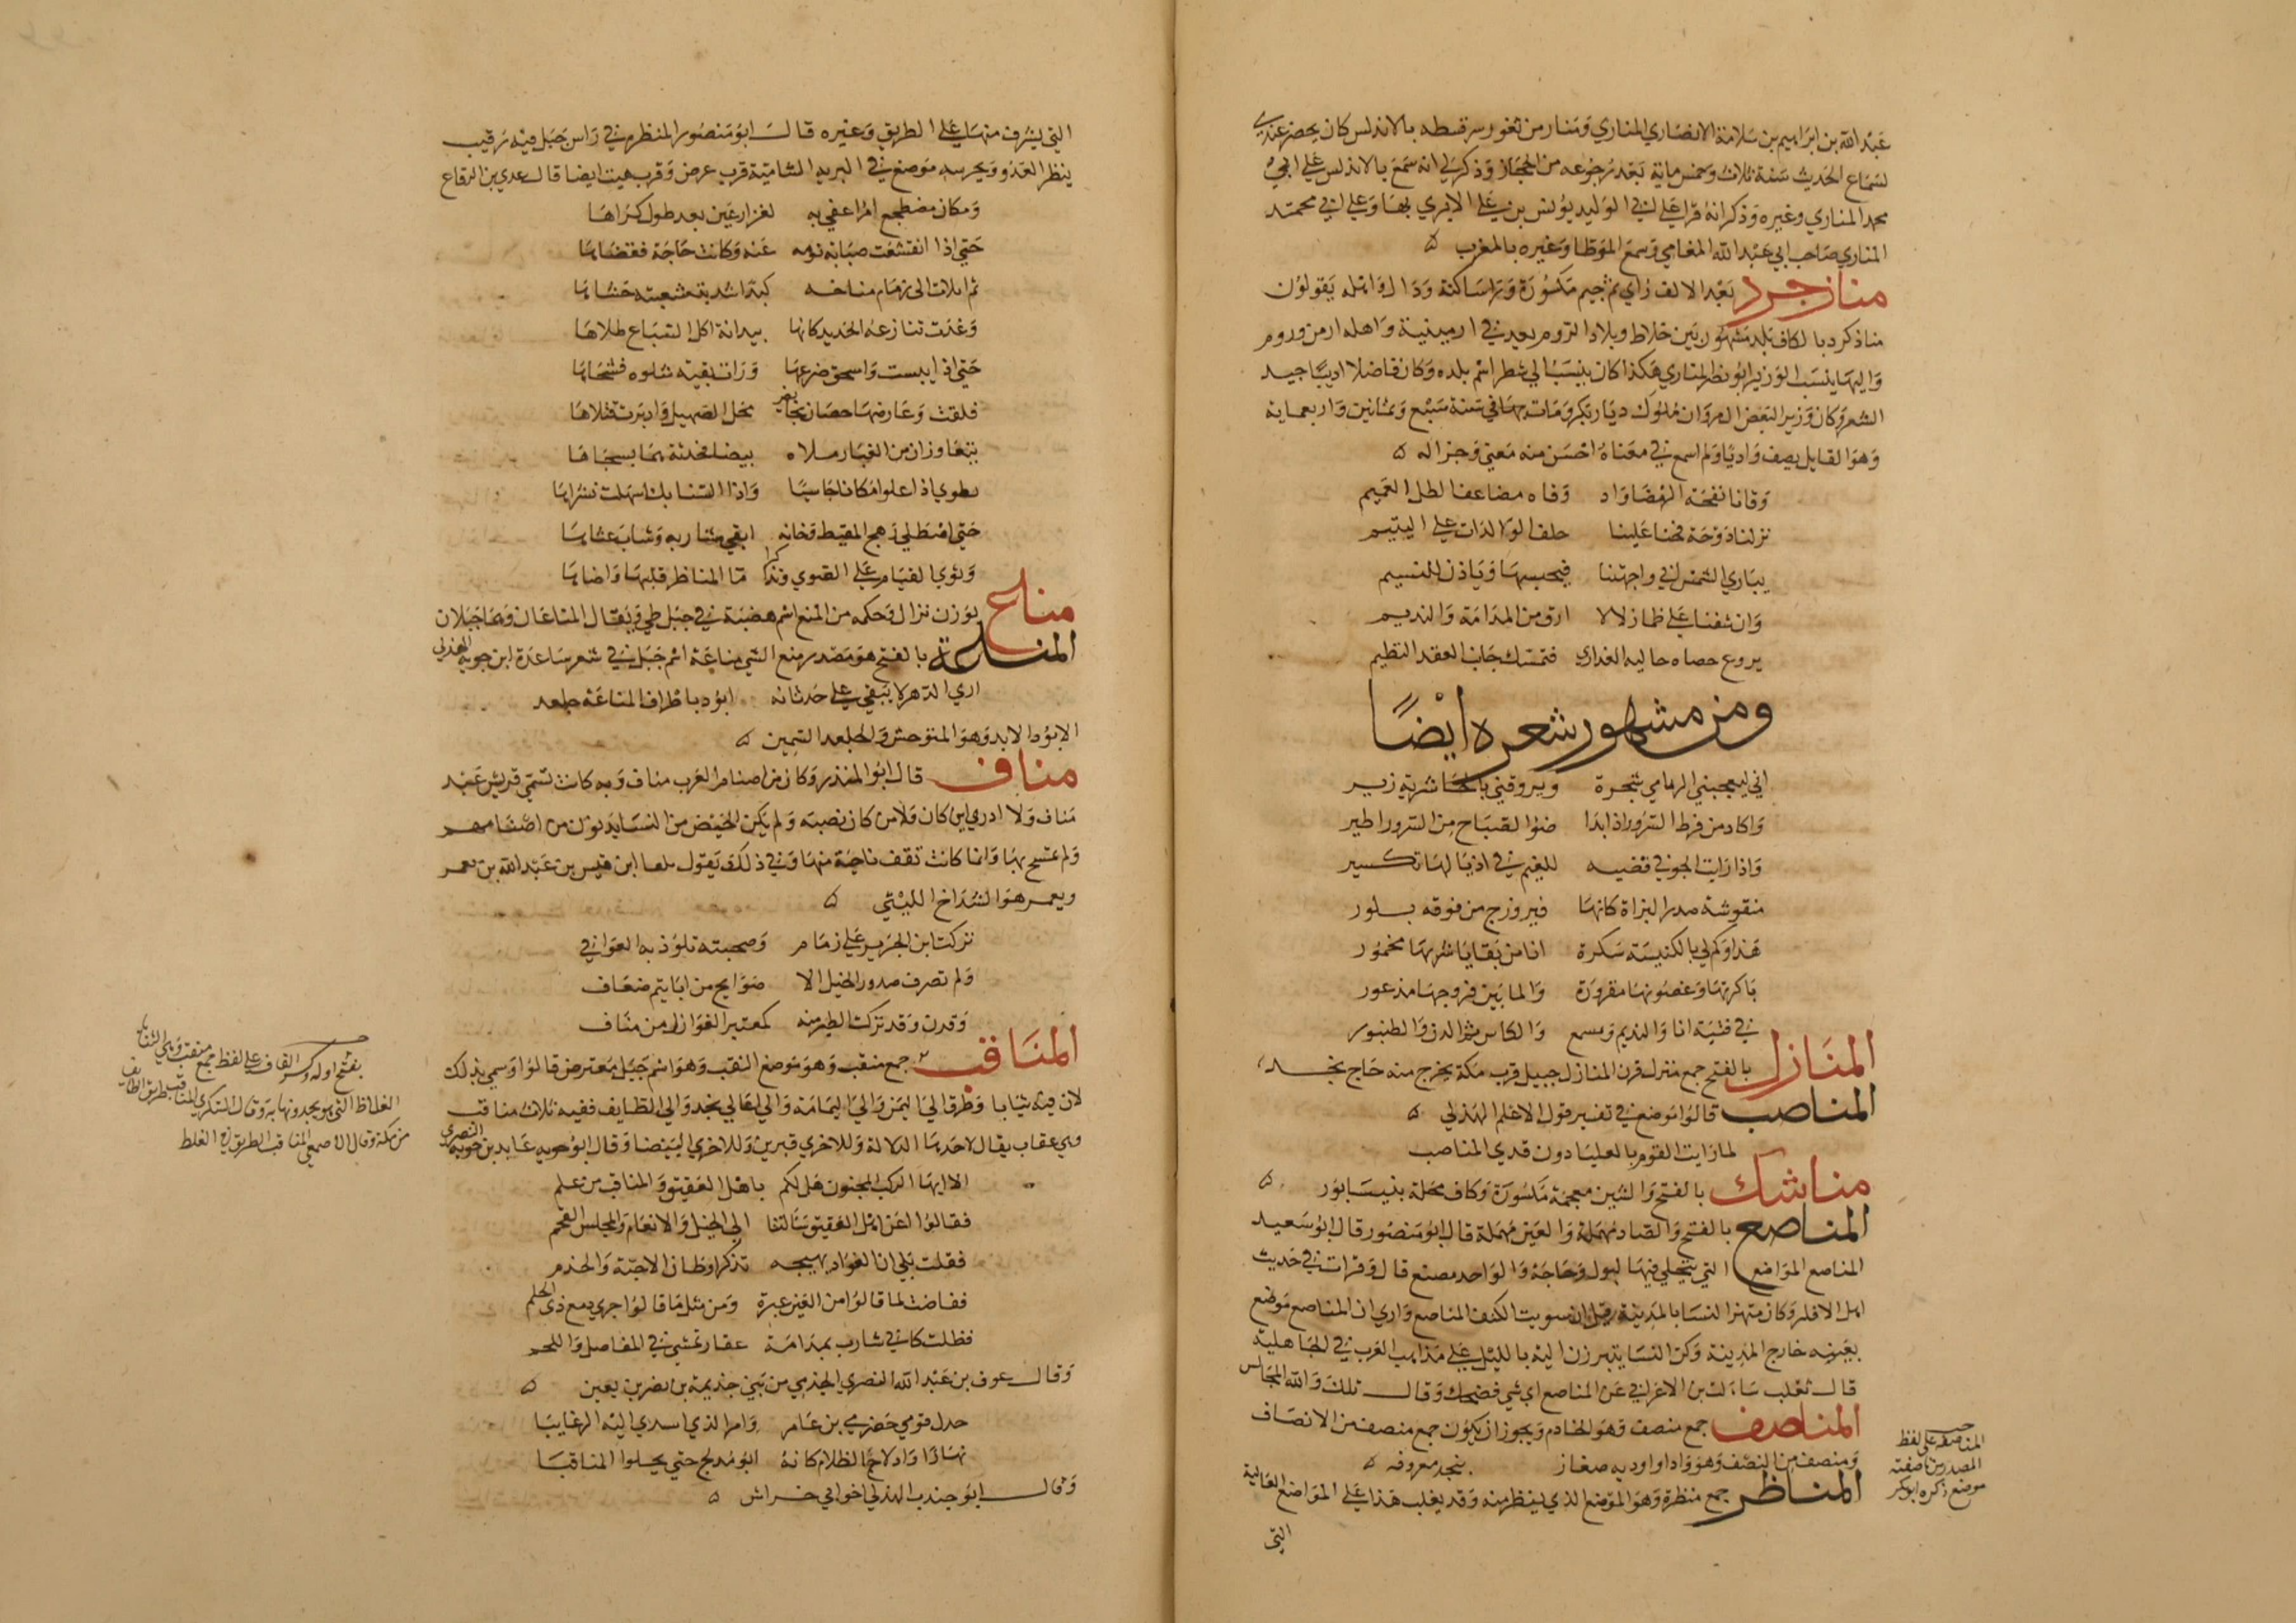 عَبْد الله بن ابراهيم بن سلامة الانصاري المناري ومنار من ثغور سرقسطه بالاندلس كان يحضر عندي
لسماع الحديث سنة ثلاث وخمس ماية بعد رجوعه من الحجاز وذكر لي انه سمع بالاندلس على ابي
محمد المناري وغيره وذكر انه قرا على ابي الوليد يونس بن علي الابري بها وعلى ابي محمد
المناري صاحب ابي عبد الله المغامي وسمع الموطا وغيره بالمغرب ه
منازجرد بعد الالف زاي ثم جيم مكسورة وراساكنة ودال واهله يقولون
منازكرد بالكاف بلد مشهور بين خلاط وبلاد الروم يعد في ارمينية واهله ارمن وروم
واليها ينسب الوزير ابو نصر المنازي هكذا كان ينسب الى شطر اسم بلده وكان فاضلا اديبا جيد
الشعر وكان وزير البعض ال مروان ملوك ديار بكر ومات بها في سنة سبع وثمانين واربعماية
وهو القايل يصف واديا ولم اسمع في معناه احسن منه معنى وجزاله ه
وقانا نفحة الرمضا واد وقاه مضاعف الطل العميم
نزلنا دوحة فحنا علينا حلف الوالدات على اليتيم
يباري الشمس اني واجهتنا فيحبسها وياذن للنسيم
وان شفنا على ظما زلالا ارق من المدامة والنديم
يروع حصاه حاليه العذاري فتمسك جانب العقد النظيم
ومن مشهور شعره ايضًا
اني ليعجبني الزنامي سحرة ويروقني بالجاشرية زير
واكاد من فرط السرور اذا بدا ضوا الصباح من السرور اطير
واذا رايت الجو في فضيه للغيم في اذيالها تكسير
منقوشة صدر البزاة كانها فيروزج من فوقه بلور
هذا وكم لي بالكنيسة سكرة انا من بقايا شربها مخمور
باكرتها وغصونها مقرورة والما بين فروجها مذعور
في فتية انا والنديم ومسمع والكاس ثم الدن والطنبور
المنازل بالفتح جمع منزل قرن المنازل جبيل قرب مكة يخرج منه حاج نجد
المناصب قالوا موضع في تفسير قول الاعلم الهذلي ه
لما رايت القوم بالعليا دون قدي المناصب
مناشك بالفتح والشين معجمة مكسورة وكاف محلة بنيسابور ه
المناصع بالفتح والصاد مهملة والعين مهملة قال ابو منصور قال ابو سعيد
المناصع المواضع التي يتخلي فيها لبول وحاجة والواحد مصنع قال وقرات في حديث
اهل الافك وكان متبرز النسا بالمدينة قبل ان سويت الكنف المناصع واري ان المناصع موضع
بعينه خارج المدينة وكن النسا يتبرزن اليه بالليل على مذاهب العرب في الجاهلية
قال ثعلب سالت بن الاعرابي عن المناصع اي شي فضحك وقال تلك والله المجالس
المناصف جمع منصف وهو الخادم ويجوز ان يكون جمع منصف من الانصاف
ومنصف من النصف وهو واد او اوديه صغار بنجد معروفه ه
المناظر جمع منظرة وهو الموضع الذي ينظر منه وقد يغلب هذا على المواضع العالية
التي
المناصفه على لفظ
المصدر من ناصفته
موضع ذكره ابو بكر
التي يشرف منها على الطريق وغيره قال ابو منصور المنظره في راس جبل فيه رقيب
ينظر العدو ويحرسه موضع في البريه الشامية قرب عرض وقرب هيت ايضا قال عدي بن الرقاع
ومكان مضطجع امرا عفي به لغرار عين بعد طول كراها
حتى اذا انقشعت صبابة نومه عنه وكانت حاجة فقضاها
ثم الى زمام مناخه
وغدت تنازعه الحديد كانها بيدانة اكل السباع طلاها
حتى اذا يبست واسحق ضرعها وران بقيه شلوه فشجاها
فلقت وعارضها حصان نحايص صحل الصهيل وادبرت فتلاها
يتعاوران من الغبار ملاه بيضا محدثة هما نسجاها
تطوي اذا علوا مكانا جاسيا واذا السنابك اسهلت نشراها
حتى اصطلي رهج المقيظ وخانه ابقي مشاربه وشاب عثاها
وثوي القيام على الصوي وتذاكرا ما المناظر قلبها واضاها
مناع بوزن نزال وحكمه من المنع اسم هضبة في جبل طي ويقال المناعان وهما جبلان
المناعة بالفتح هو مصدر منع الشي مناعة اسم جبل في شعر ساعدة ابن جوية الهذلي
اري الدهر لا يبقي على حدثانه ابود باطراف المناعة جلعد
الابود الابد وهو المتوحش والجلعد السمين ه
مناف قال ابو المنذر وكان من اصنام العرب مناف وبه كانت تسمي قريش عبد
مناف ولا ادري اين كان ولا من كان نصبه ولم يكن الحيض من النسا يدنون من اصنامهم
ولم تمسح بها وانما كانت تقف ناحية منها وفي ذلك يقول بلعا ابن قيس بن عبد الله بن يعمر
ويعمر هو الشداخ الليثي ه
تركت ابن الجرير على زمام وصحبته تلوذ به العوافي
ولم تصرف صدور الخيل الا صوايح من ايايتم ضعاف
وقرن وقد تركت الطير منه كمعتبر العوارك من مناف
المناقب جمع منقب وهو موضع النقب وهو اسم جبل معترض قالوا وسمي بذلك
لان فيه ثنايا وطرقا الى اليمن والى اليمامة والى اعالي نجد والى الطايف ففيه ثلاث مناقب
وهي عقاب يقال لاحداها الدلالة وللاخري قبرين وللاخري البيضا وقال ابو جويه عابد بن جويه النصري
الا ايها الركب المخبون هل لكم باهل العقيق والمناقب من علم
فقالوا اعن اهل العقيق سالتنا الى الخيل والانعام والمجلس الفخم
فقلت بلي ان الفواد يهيجه تذكر اوطان الاحبة والخدم
ففاضت لما قالوا من العين عبرة ومن مثل ما قالوا جري دمع ذي الحلم
فظلت كاني شارب بمدامة عقار تمشي في المفاصل واللحم
وقال عوف بن عبد الله النصري الجذمي من بني جذيمة بن نصر بن قعين ه
خذل قومي حضرمي بن عامر وامر الذي اسدي اليه الرغايبا
نهارا وادلاج الظلام كانه ابو مدلج حتى يحلوا المناقبا
وقال ابو جندب الهذلي اخو ابي خراش ه
بفتح اوله وكسر القاف على لفظ جمع منقب وهي الثنايا
الغلاظ التي بين نجد وتهامة وقال السكري المناقب طريق الطايف
من مكة وقال الاصمعي المناقب الطريق في الغلظ